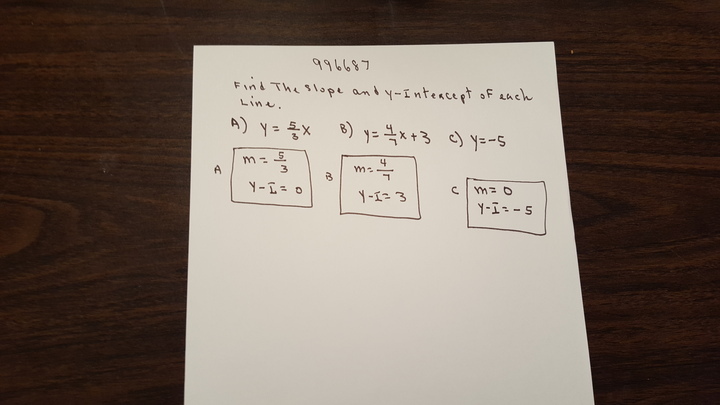 996687
Find The slope and y-Intercept of each
Line.
A) y = 5/3 x B) y = 4/7 x + 3 C) y = -5
A m = 5/3 Y-I = 0
B m = 4/7 Y-I = 3
C m = 0 Y-I = -5